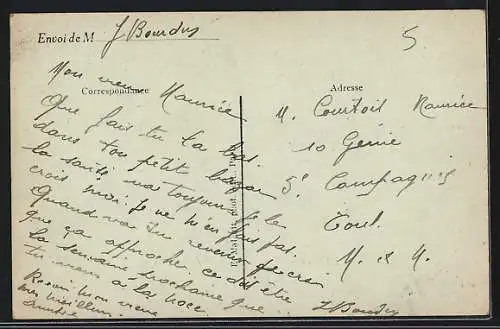 Envoi de M J Bourdus
5
Correspondance
Adresse
Mon vieux Maurice
Que fais tu la bas
dans ton petit
la santé va toujours je le
crois moi je ne m'en fais pas
Quand va tu revenir
que ça approche ce doit être
la semaine prochaine que
tu viens a la noce
mon vieux
mes meilleurs
M. Courtois Maurice
10 Génie
5e Campagnes
Toul.
M. et M.
J Bourdus